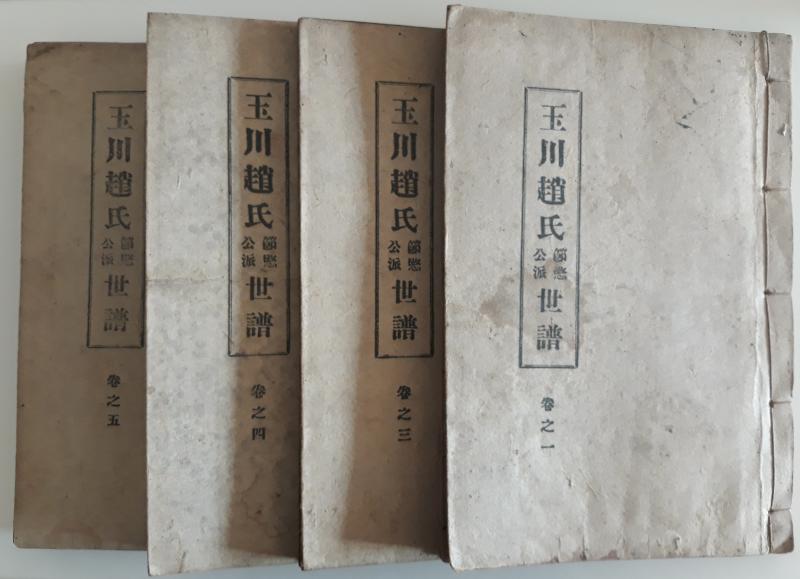 玉川趙氏節愍公派世譜
卷之一
玉川趙氏節愍公派世譜
卷之三
玉川趙氏節愍公派世譜
卷之四
玉川趙氏節愍公派世譜
卷之五